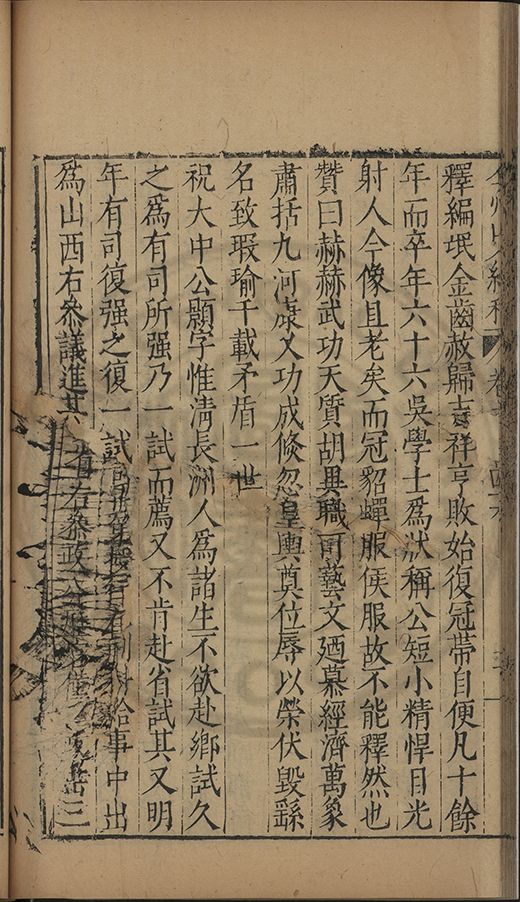 釋編氓金齒赦歸吉祥亨敗始復冠帶自便凡十餘
年而卒年六十六吳學士爲狀稱公短小精悍目光
射人今像且老矣而冠貂蟬服侯服故不能釋然也
贊曰赫赫武功天質胡異職司藝文廼慕經濟萬象
肅括九河康乂功成倏忽皇輿奠位辱以榮伏毀繇
名致瑕瑜千載矛盾一世
祝大中公顥字惟清長洲人爲諸生不欲赴鄉試久
之爲有司所强乃一試而薦又不肯赴省試其又明
年有司復强之復一試給事中出
爲山西右叅議進其省右叅政三